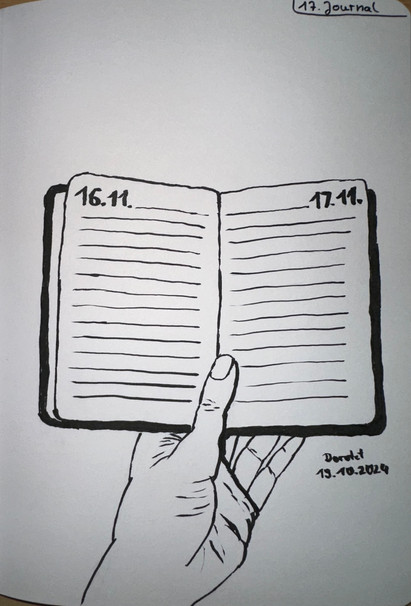 17. Journal
16.11.
17.11.
19.10.2024